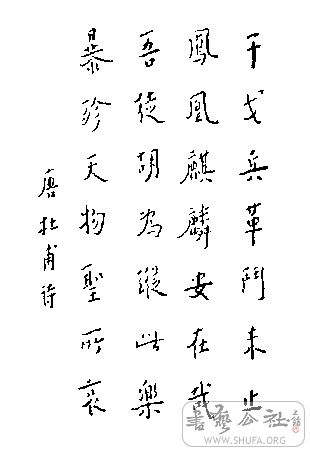 干戈兵革鬥未止
鳳凰麒麟安在哉
吾徒胡為縱此樂
暴殄天物聖所哀
唐杜甫詩
書藝公社
WWW.SHUFA.ORG